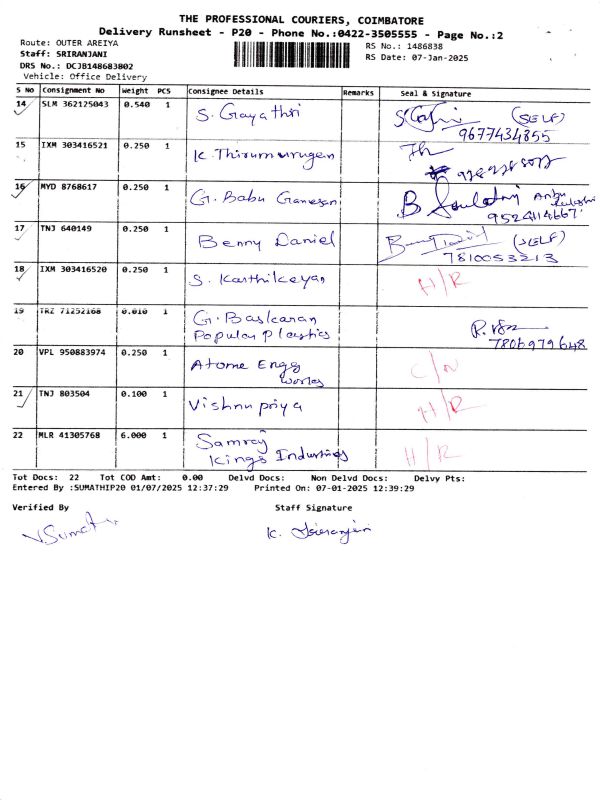 THE PROFESSIONAL COURIERS, COIMBATORE
Delivery Runsheet - P20 - Phone No.:0422-3505555 - Page No.:2
Route: OUTER AREIYA
RS No.: 1486838
Staff: SRIRANJANI
RS Date: 07-Jan-2025
DRS No.: DCJB148683802
Vehicle: Office Delivery
S No Consignment No Weight PCS Consignee Details Remarks Seal & Signature
14 SLM 362125043 0.540 1 S. Gayathri (SELF)
9677434855
15 IXM 303416521 0.250 1 K. Thirumurugen
16 MYD 8768617 0.250 1 G. Babu Ganesan
9524114667
17 TNJ 640149 0.250 1 Benny Daniel (SELF)
7810053213
18 IXM 303416520 0.250 1 S. Karthikeyan H/R
19 TRZ 71252168 0.010 1 G. Baskaran
Popular Plastics
7806979648
20 VPL 950883974 0.250 1 Atome Engg C/N
Works
21 TNJ 803504 0.100 1 Vishnu priya H/R
22 MLR 41305768 6.000 1 Samraj H/R
Kings Industries
Tot Docs: 22 Tot COD Amt: 0.00 Delvd Docs: Non Delvd Docs: Delvy Pts:
Entered By :SUMATHIP20 01/07/2025 12:37:29 Printed On: 07-01-2025 12:39:29
Verified By Staff Signature
V. Sumathi K. Sriranjani